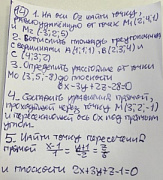 1. На оси Oz найти точку,
равноудаленную от точек M₁(2;4;1)
и M₂(-3;2;5)
2. Вычислить площадь треугольника
с вершинами A(1;1;1), B(2;3;4) и
C(4;3;2)
3. Определить расстояние от точки
M₀(3;5;-8) до плоскости
6x-3y+2z-28=0
4. Составить уравнение прямой,
проходящей через точку M₁(3;2;-1)
и пересекающей ось Ox под прямым
углом.
5. Найти точку пересечения
прямой x-1/1 = y+1/-2 = z/6
и плоскости 2x+3y+z-1=0